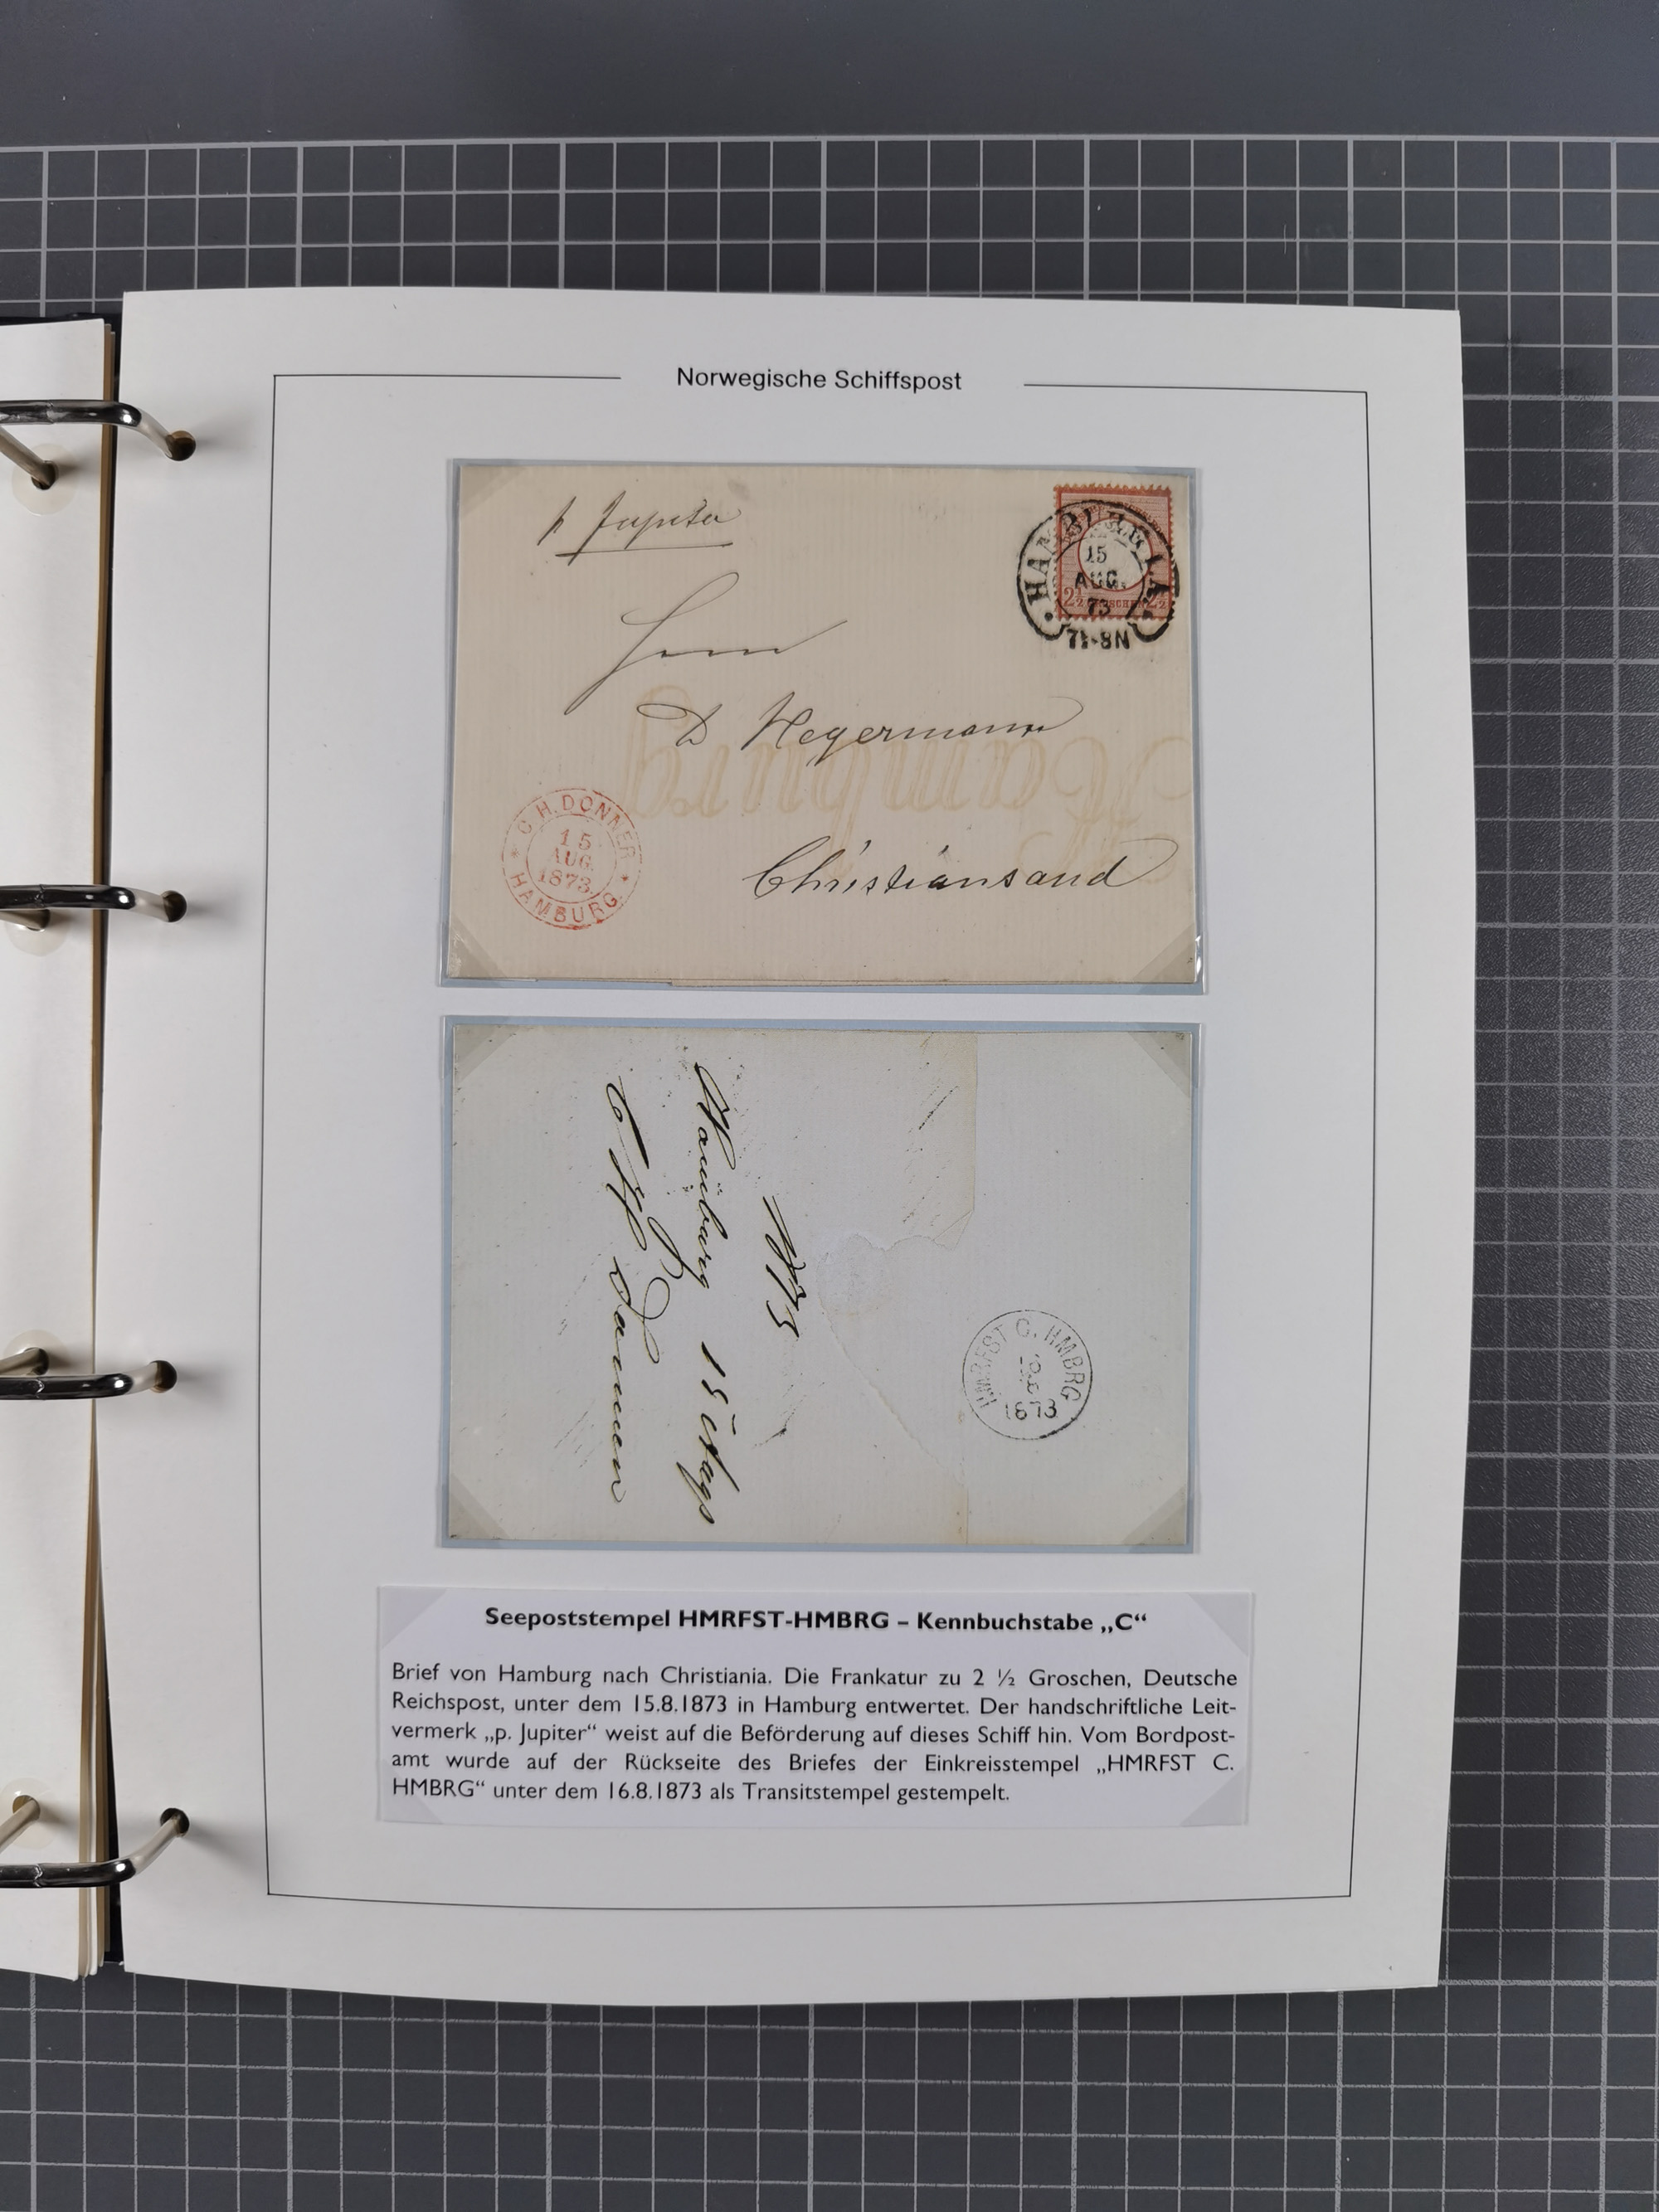 Norwegische Schiffspost
p Jupiter
Herrn
D Hegermann
Christiansand
HAMBURG I.A.
15
AUG.
73
7½-8N
2½ GROSCHEN 2½
C.H. DONNER
15
AUG.
1873.
HAMBURG.
Hamburg
1873
Hamburg 15 Augs
C H Donner
HMRFST C. HMBRG
1873
Seepoststempel HMRFST-HMBRG – Kennbuchstabe „C“
Brief von Hamburg nach Christiania. Die Frankatur zu 2 ½ Groschen, Deutsche
Reichspost, unter dem 15.8.1873 in Hamburg entwertet. Der handschriftliche Leit-
vermerk „p. Jupiter“ weist auf die Beförderung auf dieses Schiff hin. Vom Bordpost-
amt wurde auf der Rückseite des Briefes der Einkreisstempel „HMRFST C.
HMBRG“ unter dem 16.8.1873 als Transitstempel gestempelt.